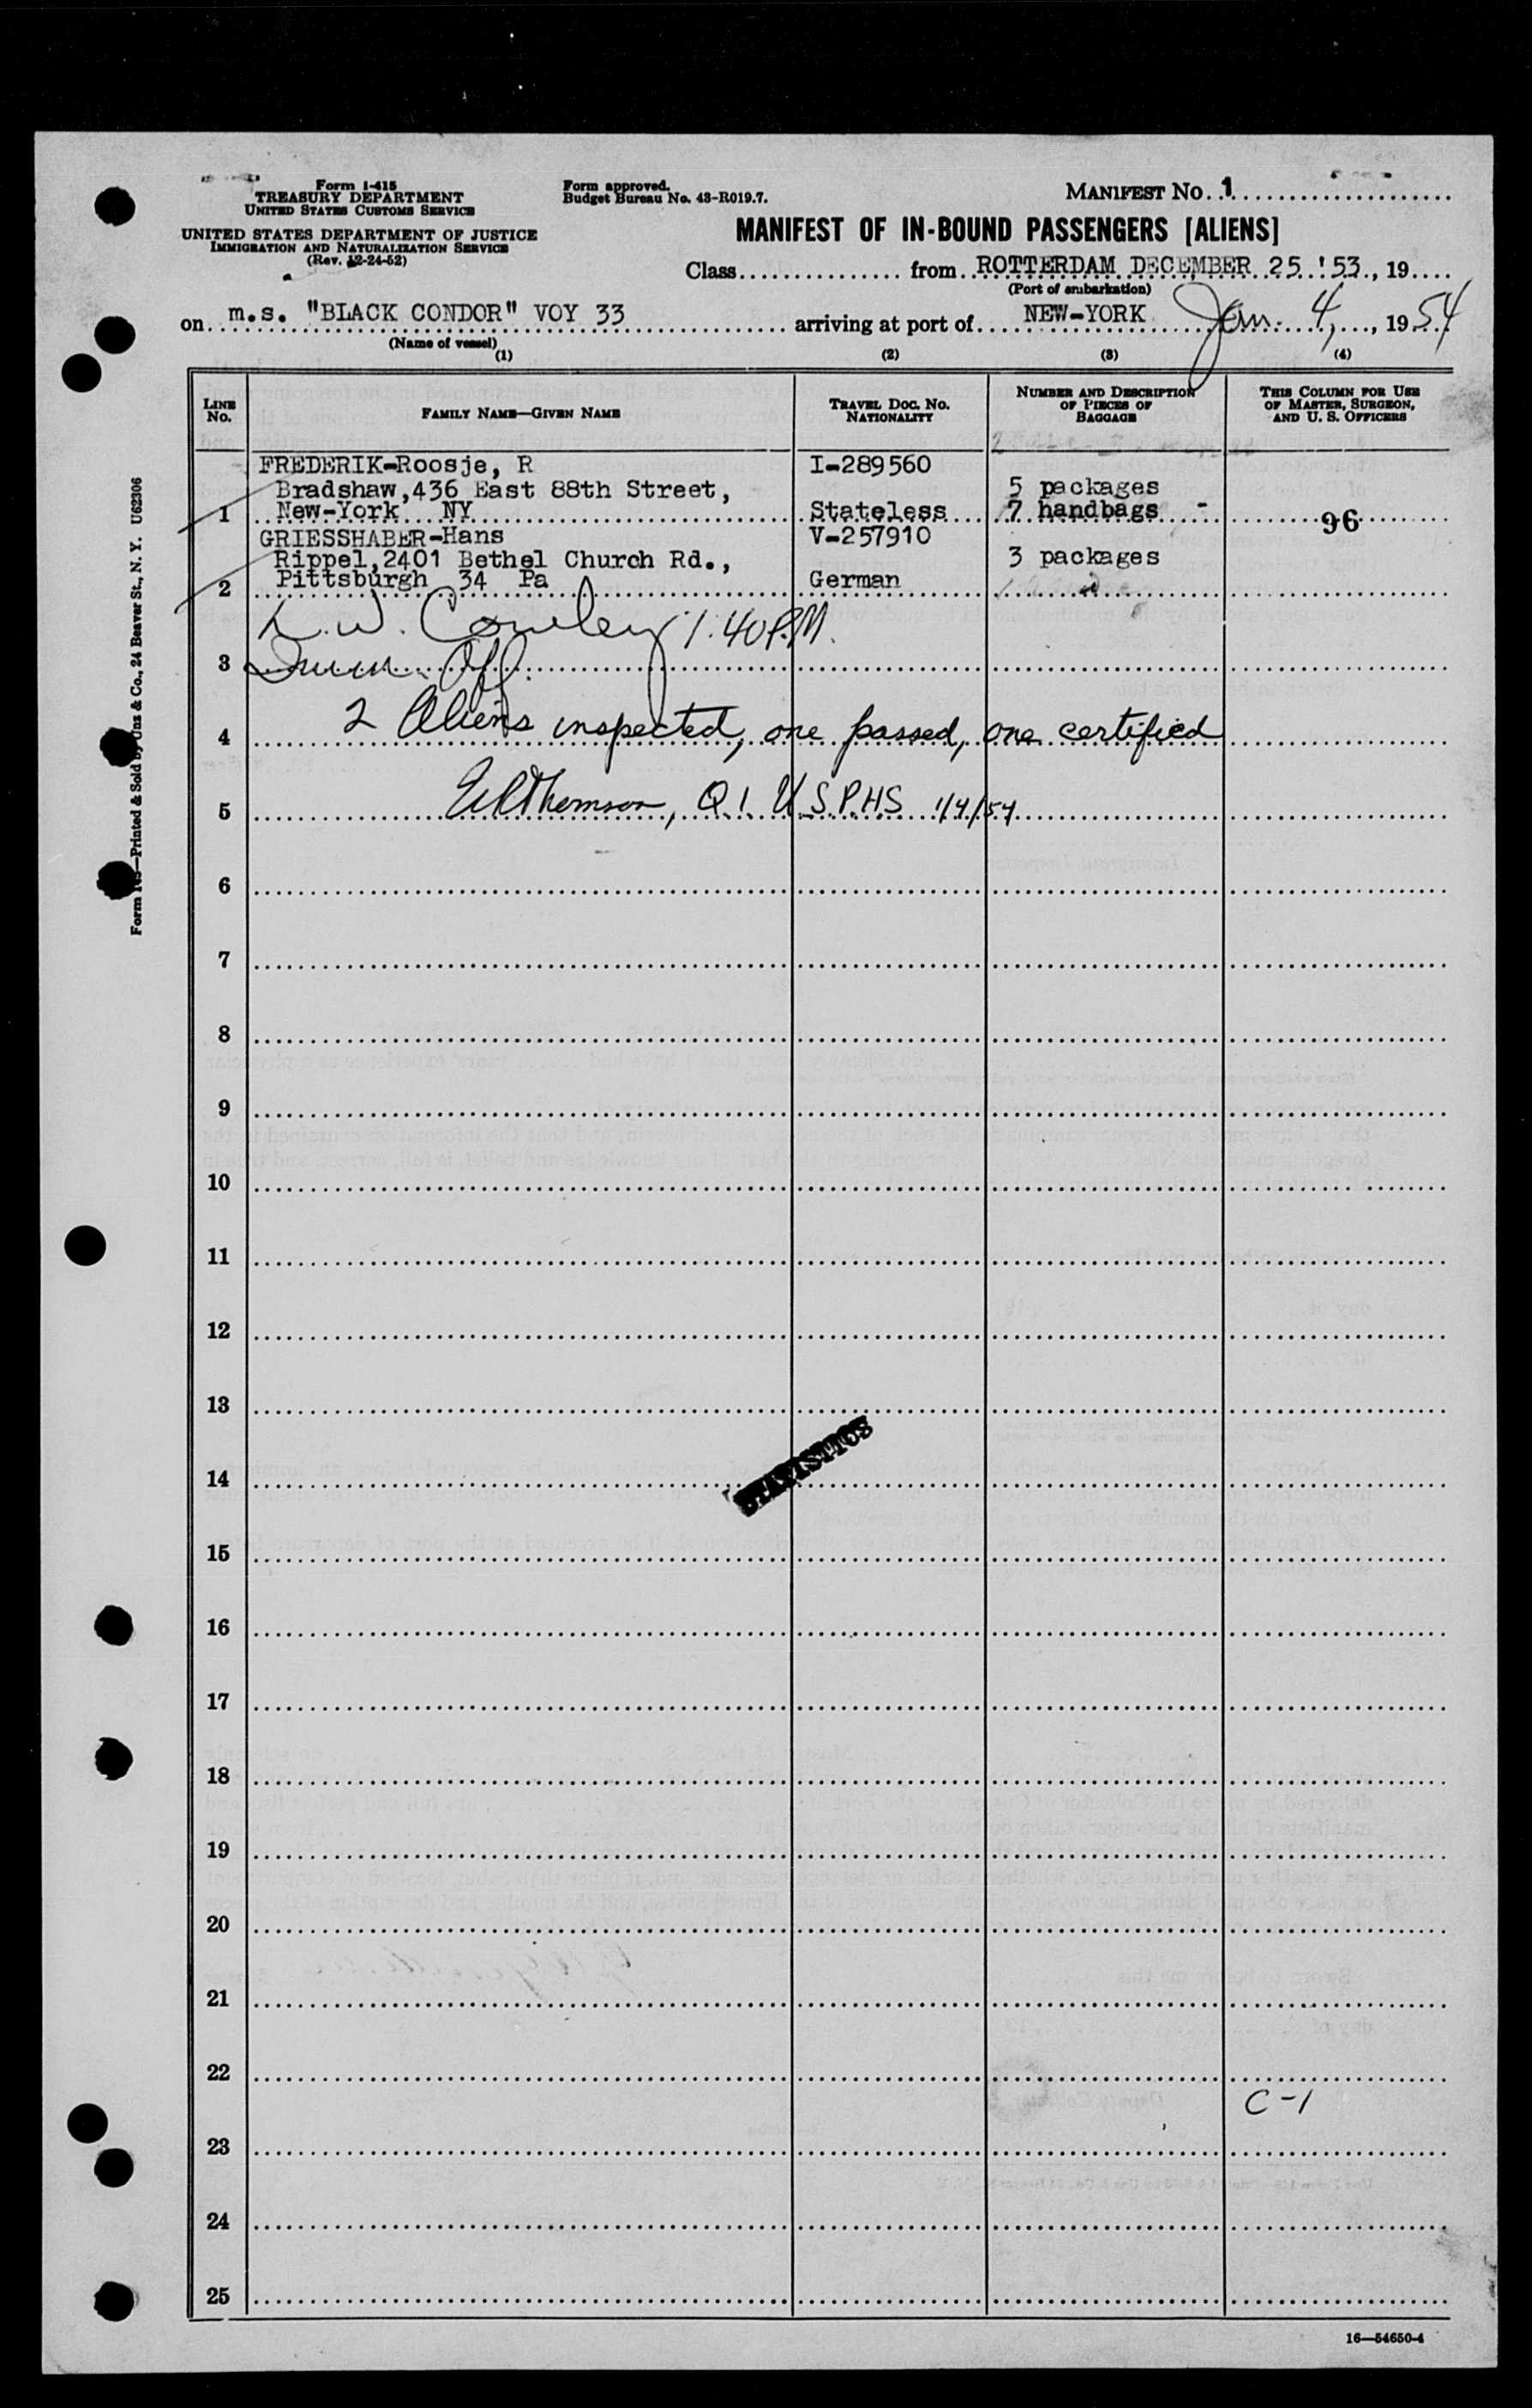 Form I-415
TREASURY DEPARTMENT
UNITED STATES CUSTOMS SERVICE
UNITED STATES DEPARTMENT OF JUSTICE
IMMIGRATION AND NATURALIZATION SERVICE
(Rev. 12-24-52)
Form approved.
Budget Bureau No. 43-R019.7.
MANIFEST NO. 1
MANIFEST OF IN-BOUND PASSENGERS [ALIENS]
Class from ROTTERDAM DECEMBER 25 '53, 19
(Port of embarkation)
on m.s. "BLACK CONDOR" VOY 33 arriving at port of NEW-YORK Jan. 4, 1954
(Name of vessel)
(1) (2) (3) (4)
LINE NO. FAMILY NAME—GIVEN NAME TRAVEL DOC. NO. NATIONALITY NUMBER AND DESCRIPTION OF PIECES OF BAGGAGE THIS COLUMN FOR USE OF MASTER, SURGEON, AND U. S. OFFICERS
FREDERIK-Roosje, R I-289560
Bradshaw,436 East 88th Street, 5 packages
1 New-York NY Stateless 7 handbags - 96
GRIESSHABER-Hans V-257910
Rippel,2401 Bethel Church Rd., 3 packages
2 Pittsburgh 34 Pa German
K.W. Cowley 1:40 P.M.
3 Imm. Off.
4 2 Aliens inspected, one passed, one certified
5 Thomson, Q.I. U.S.P.H.S 1/4/54
6
7
8
9
10
11
12
13
14
STATISTICS
15
16
17
18
19
20
21
22
C-1
23
24
25
16—54650-4
Printed & Sold by Unz & Co., 24 Beaver St., N. Y. U62306